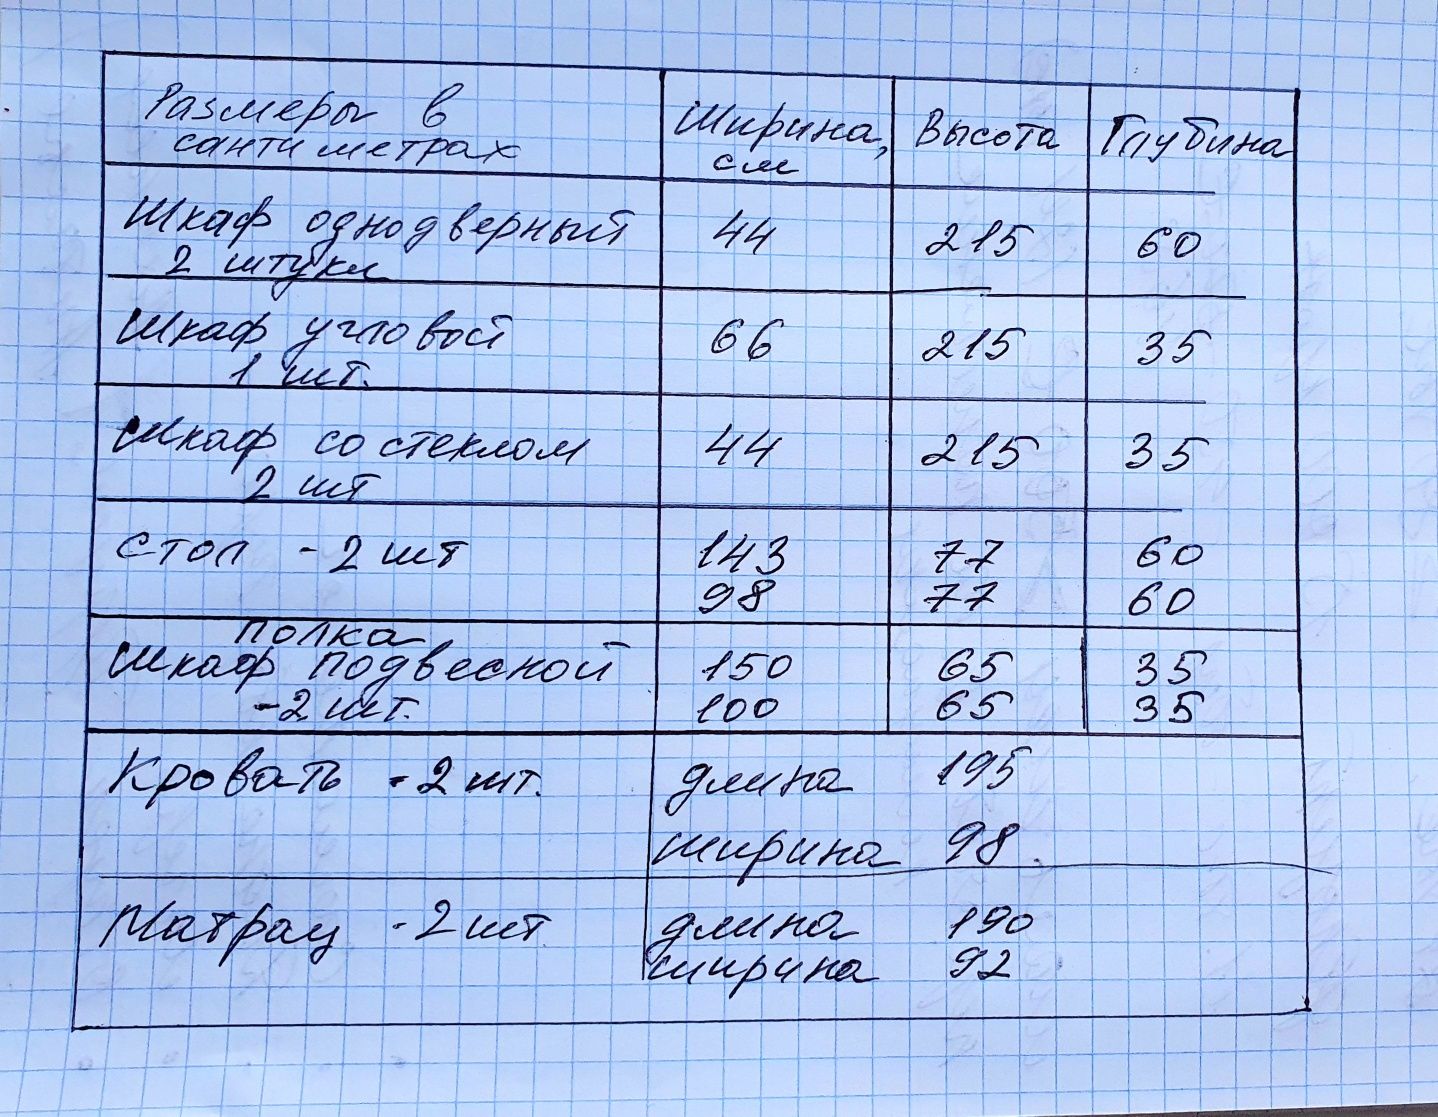 Размеры в
сантиметрах
Ширина, см
Высота
Глубина
Шкаф однодверный
2 штуки
44 215 60
Шкаф угловой
1 шт.
66 215 35
Шкаф со стеклом
2 шт
44 215 35
Стол - 2 шт
143 77 60
98 77 60
полка
Шкаф подвесной
- 2 шт.
150 65 35
100 65 35
Кровать - 2 шт.
длина 195
ширина 98.
Матрац - 2 шт
длина 190
ширина 92